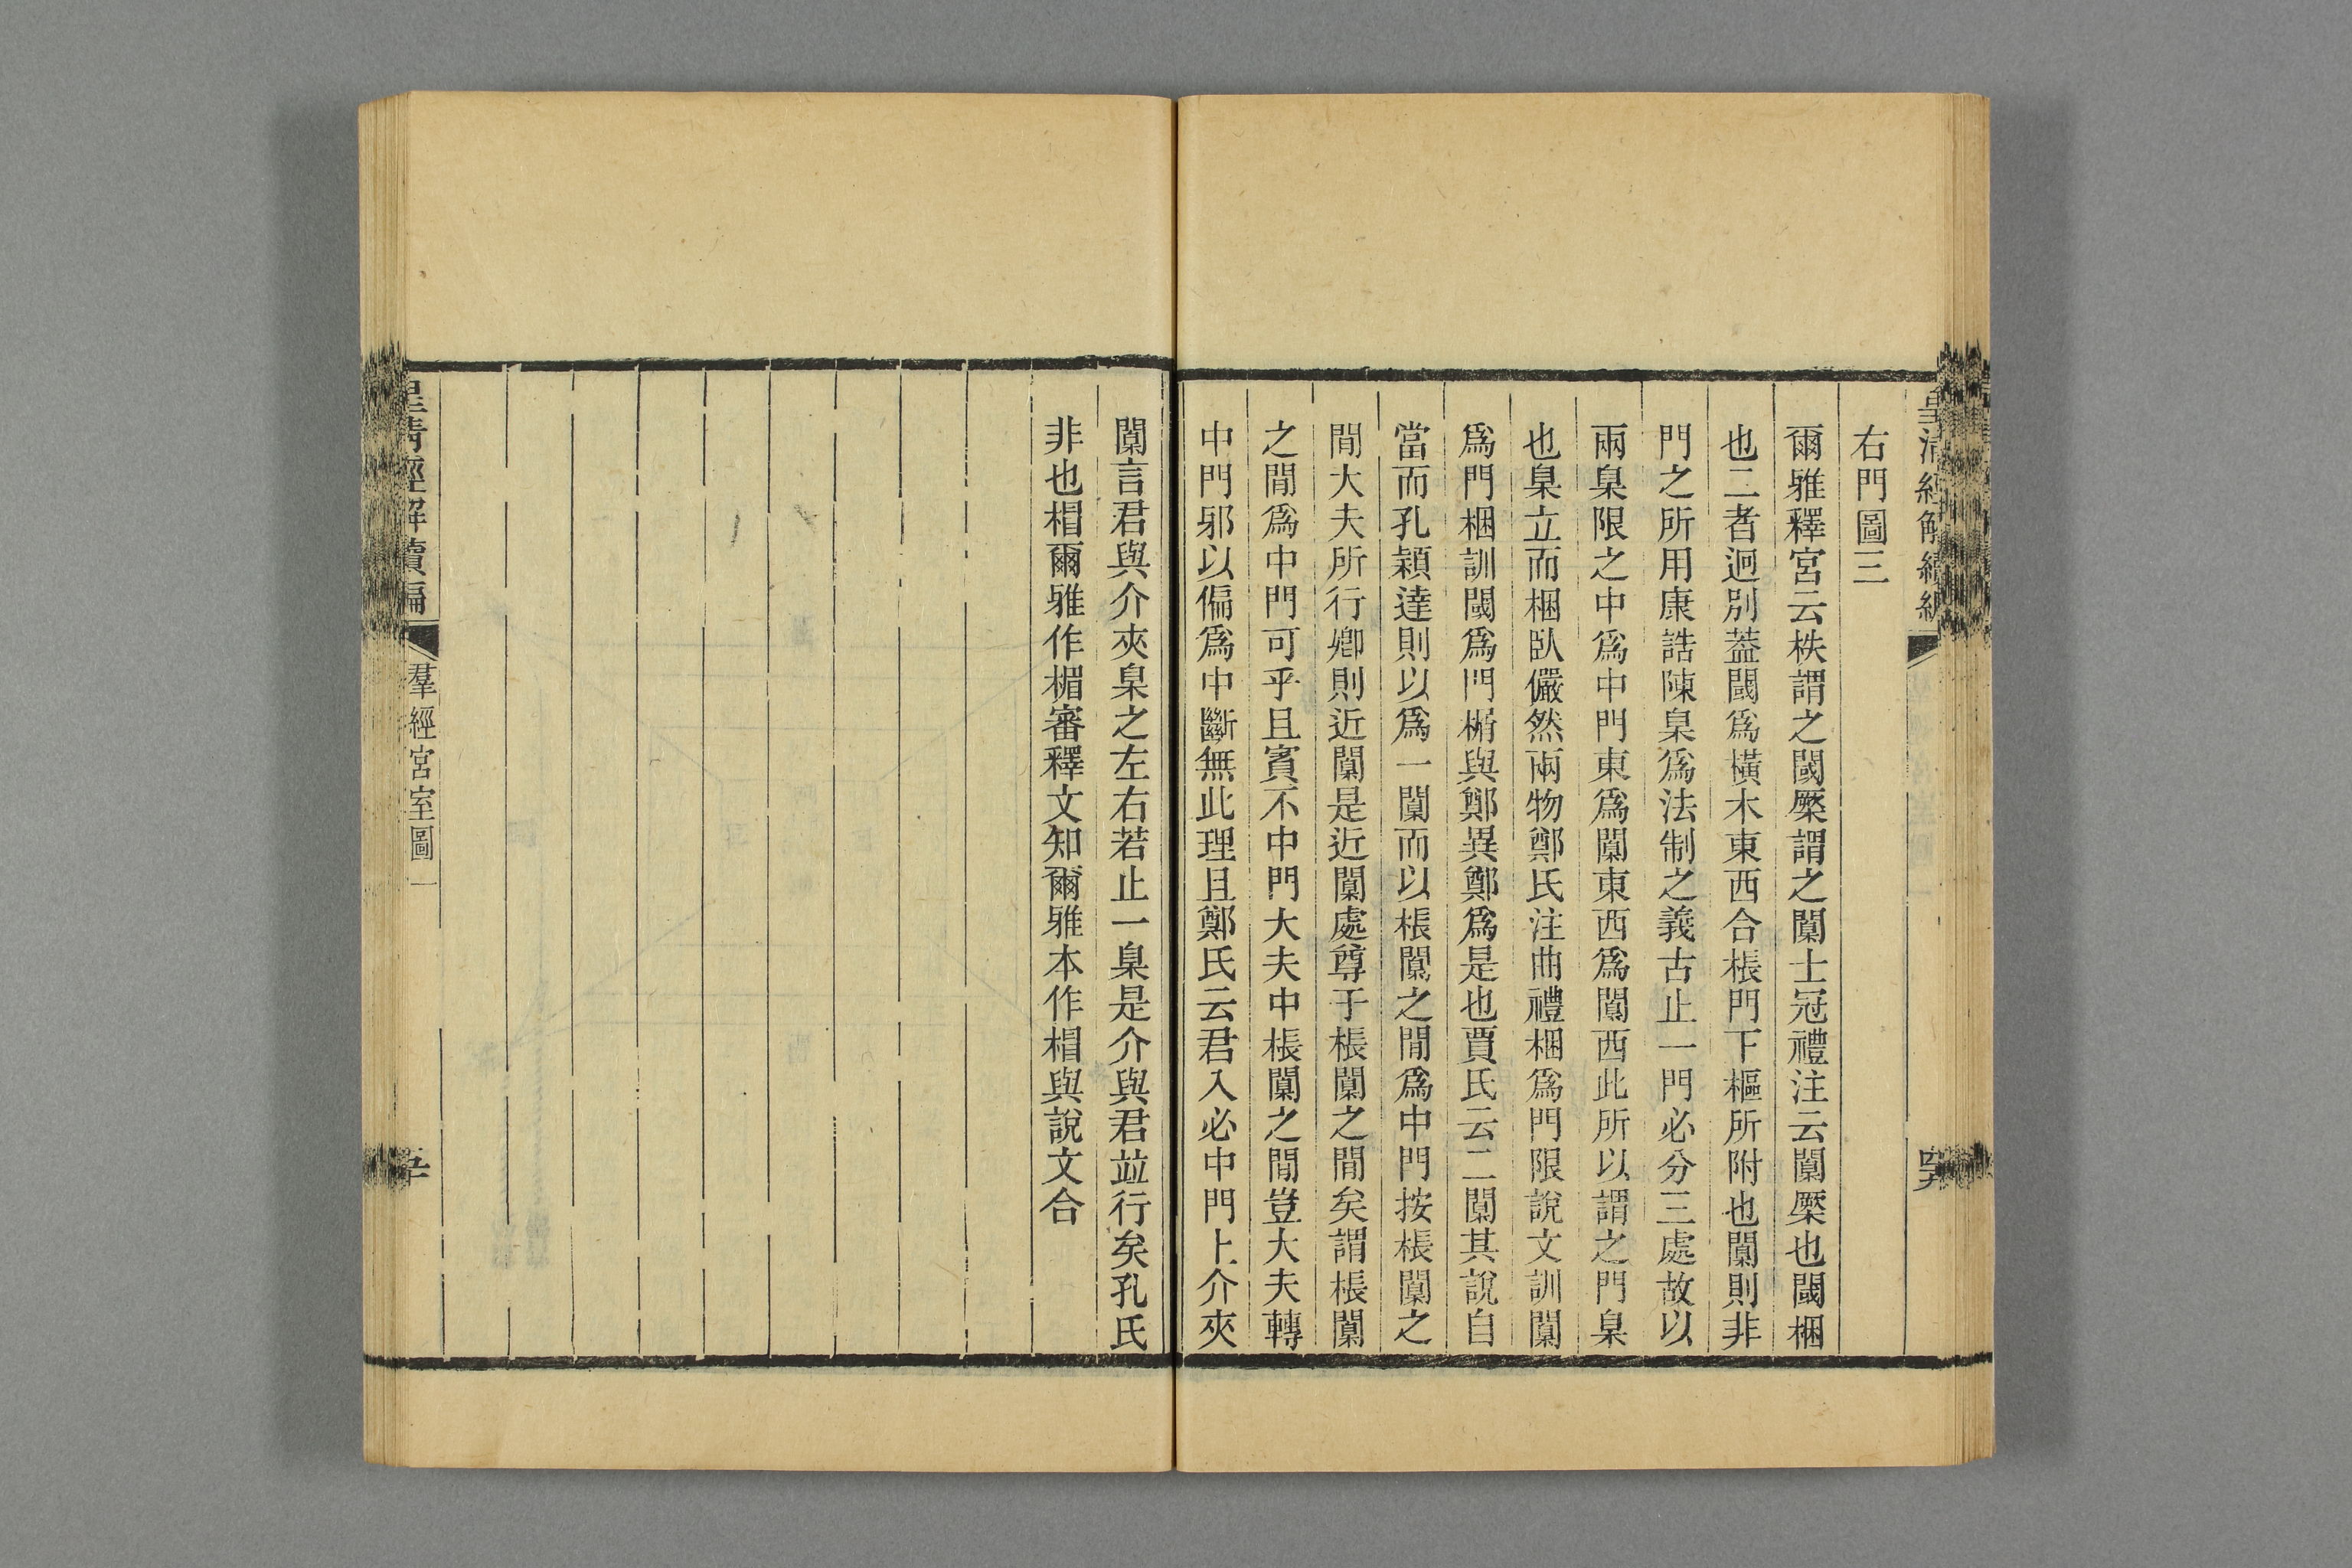 皇清經解續編
右門圖三
爾雅釋宮云柣謂之閾橜謂之闑士冠禮注云闑橜也閾梱
也二者迥別葢閾爲橫木東西合棖門下樞所附也闑則非
門之所用康誥陳臬爲法制之義古止一門必分三處故以
兩臬限之中爲中門東爲闑東西爲闑西此所以謂之門臬
也臬立而梱臥儼然兩物鄭氏注曲禮梱爲門限說文訓闑
爲門梱訓閾爲門榍與鄭異鄭爲是也賈氏云二闑其說自
當而孔穎達則以爲一闑而以棖闑之閒爲中門按棖闑之
閒大夫所行卿則近闑是近闑處尊于棖闑之閒矣謂棖闑
之閒爲中門可乎且賓不中門大夫中棖闑之閒豈大夫轉
中門邪以偏爲中斷無此理且鄭氏云君入必中門上介夾
闑言君與介夾臬之左右若止一臬是介與君竝行矣孔氏
非也楣爾雅作楣審釋文知爾雅本作楣與說文合
皇清經解續編
羣經宮室圖一